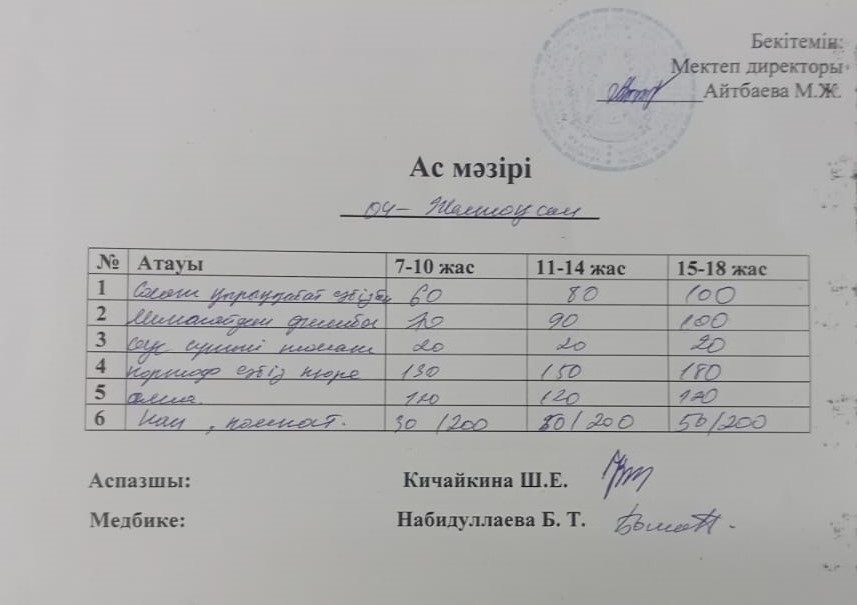 Бекітемін:
Мектеп директоры
Айтбаева М.Ж.
Ас мәзірі
04-
№ Атауы 7-10 жас 11-14 жас 15-18 жас
1 Салат қырыққабат сәбізбен 60 80 100
2 90 100
3 сүтті томат 20 20 20
4 картоф сәбіз пюре 130 150 180
5 алма. 120 120 120
6 Нан , компот. 30 /200 50/200 50/200
Аспазшы: Кичайкина Ш.Е.
Медбике: Набидуллаева Б. Т.